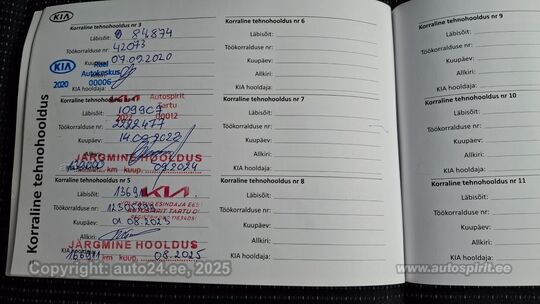 KIA
Korraline tehnohooldus
Korraline tehnohooldus nr 3
Läbisõit: 84874
Töökorralduse nr: 42073
Kuupäev: 07.09.2020
Allkiri:
KIA hooldaja:
KIA Reel
Autokeskus
2020 00006
Korraline tehnohooldus nr 4
KIA Autospirit
Tartu
2022 00012
Läbisõit: 109907
Töökorralduse nr: 2222477
Kuupäev: 14.09.2022
Allkiri:
JÄRGMINE HOOLDUS
km kuup. 09.2024
Korraline tehnohooldus nr 5
KIA
Läbisõit:
Töökorralduse nr:
Kuupäev: 01.08.2023
Allkiri:
KIA hooldaja:
JÄRGMINE HOOLDUS
km kuup. 08.2025
Korraline tehnohooldus nr 6
Läbisõit:
Töökorralduse nr:
Kuupäev:
Allkiri:
KIA hooldaja:
Korraline tehnohooldus nr 7
Läbisõit:
Töökorralduse nr:
Kuupäev:
Allkiri:
KIA hooldaja:
Korraline tehnohooldus nr 8
Läbisõit:
Töökorralduse nr:
Kuupäev:
Allkiri:
KIA hooldaja:
Korraline tehnohooldus nr 9
Läbisõit:
Töökorralduse nr:
Kuupäev:
Allkiri:
KIA hooldaja:
Korraline tehnohooldus nr 10
Läbisõit:
Töökorralduse nr:
Kuupäev:
Allkiri:
KIA hooldaja:
Korraline tehnohooldus nr 11
Läbisõit:
Töökorralduse nr:
Kuupäev:
Allkiri:
KIA hooldaja:
Copyright: auto24.ee, 2025
www.autospirit.ee